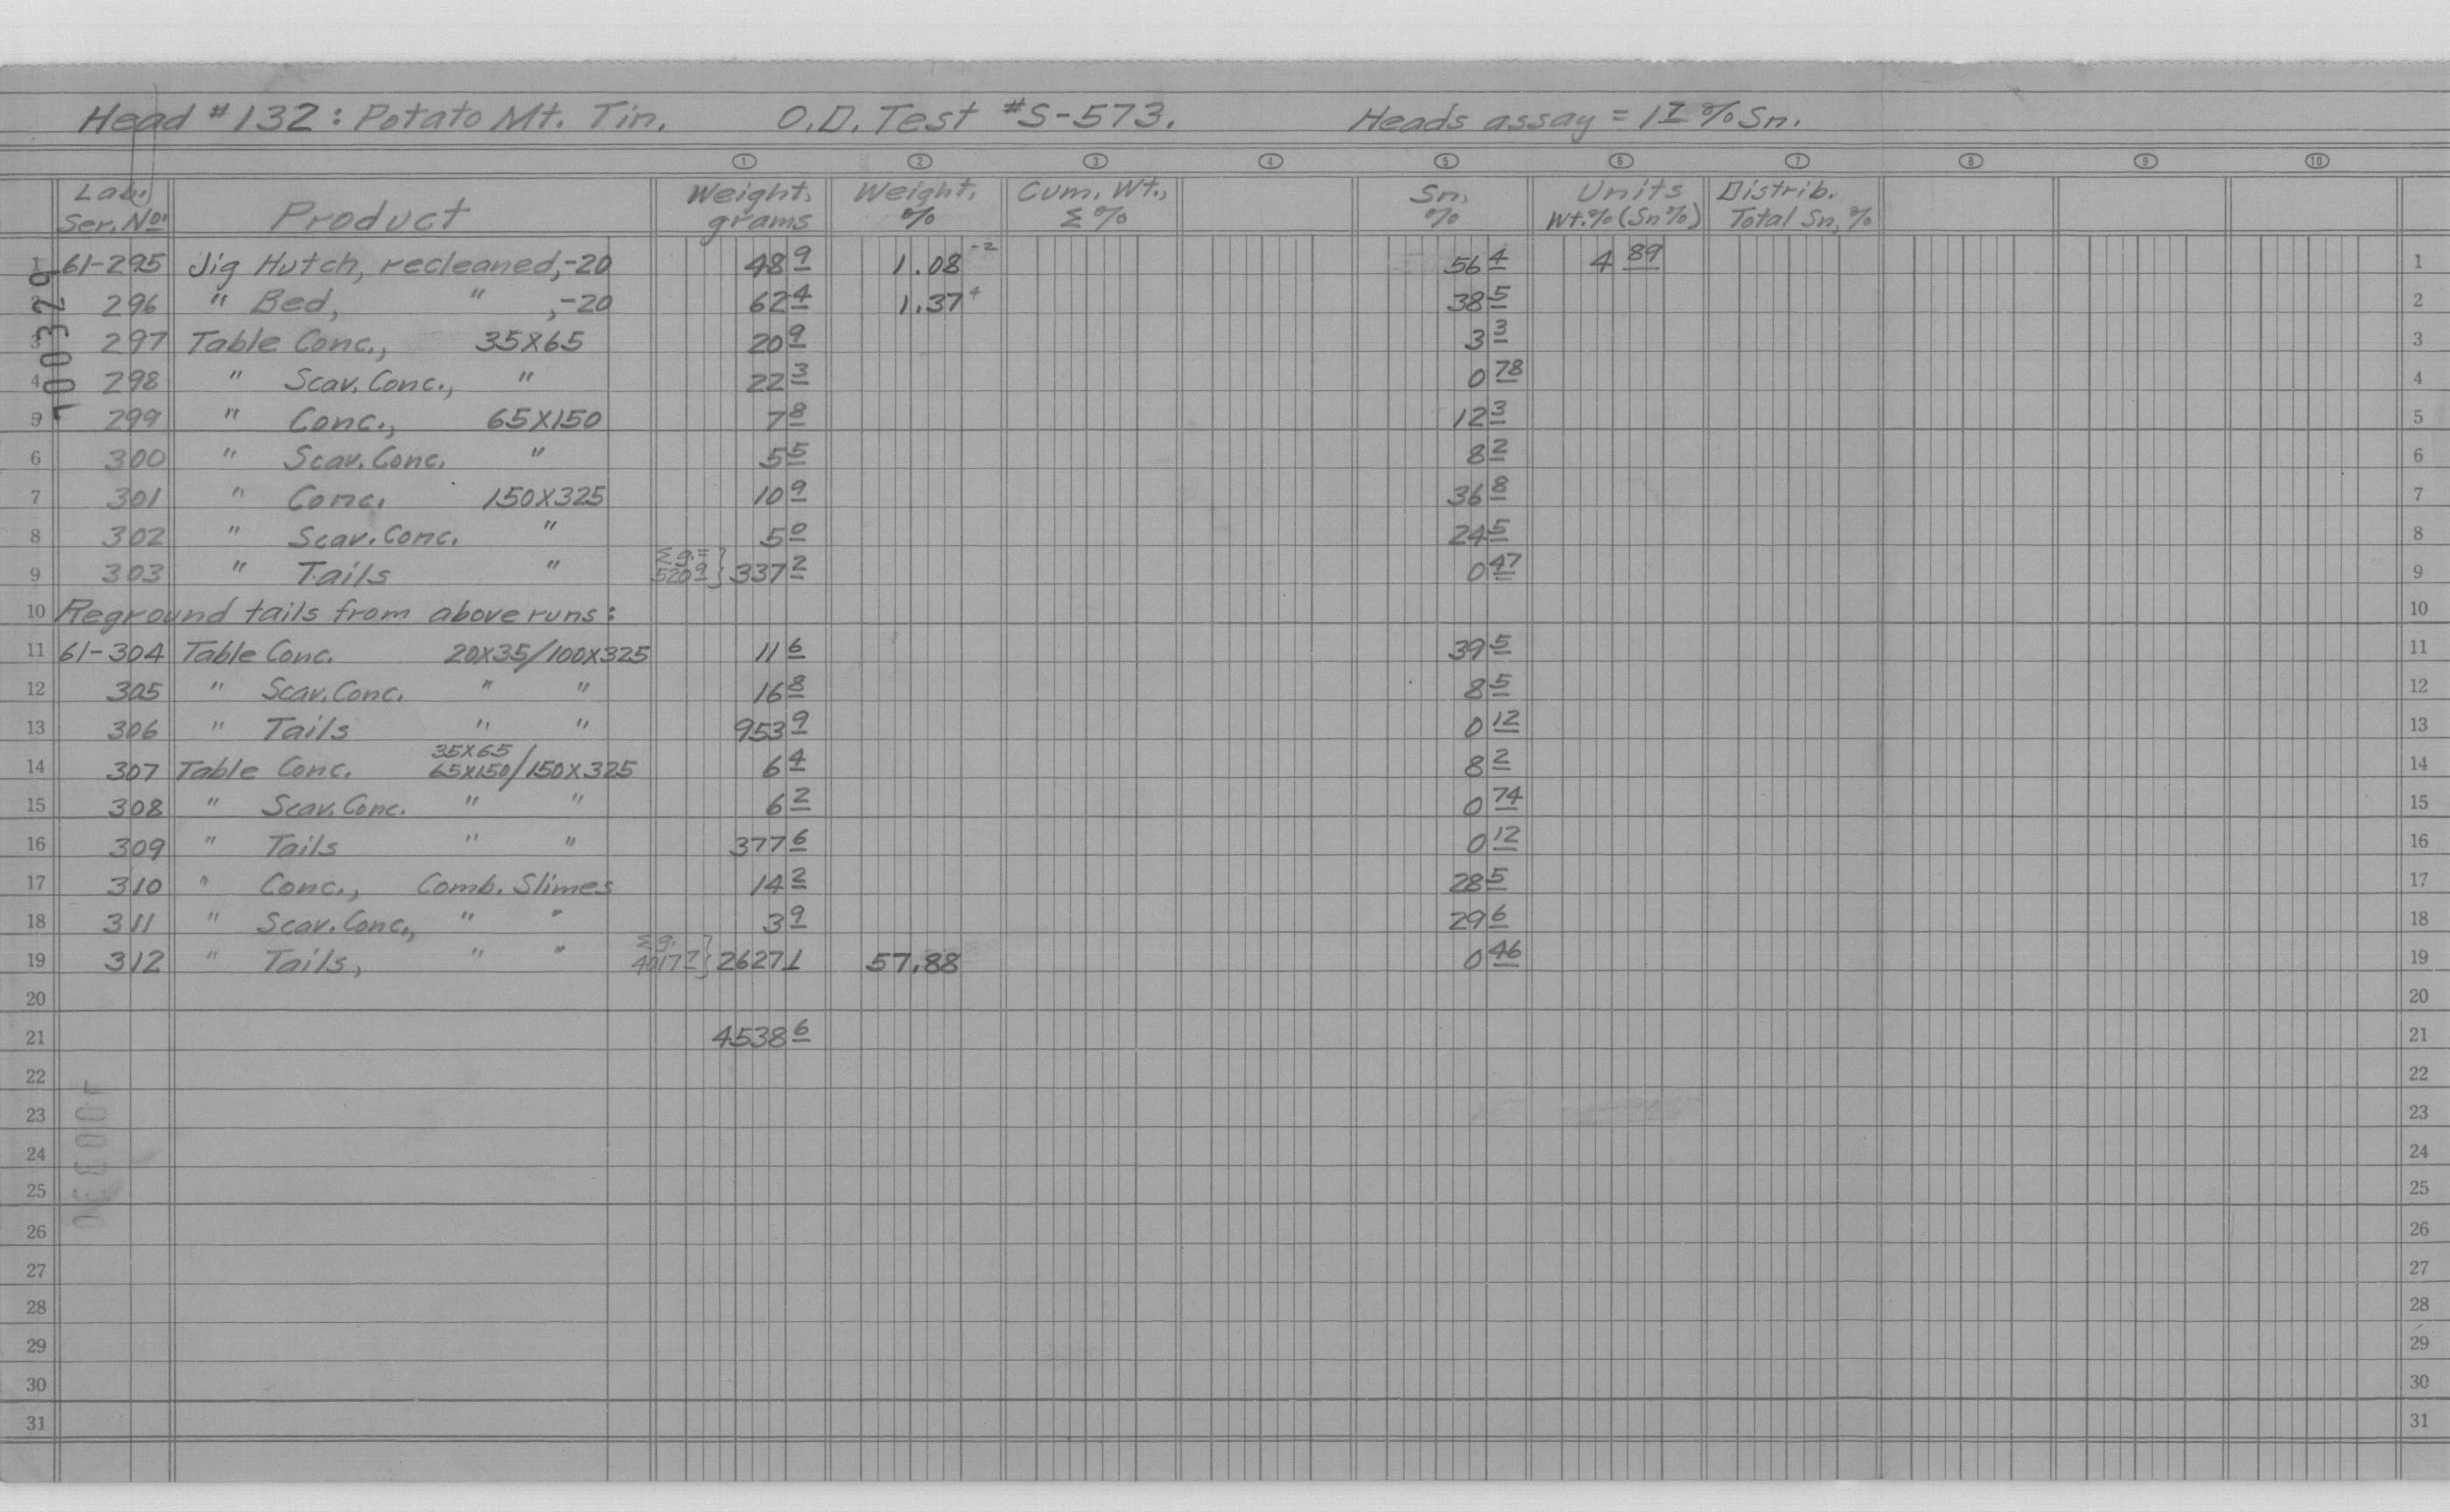 Head #132: Potato Mt. Tin. O.D. Test #S-573. Heads assay = 1 7 % Sn.
1 2 3 4 5 6 7 8 9 10
Lab. Ser. No. Product Weight, grams Weight, % Cum. Wt., Σ % Sn, % Units Wt.% (Sn %) Distrib. Total Sn, %
1 61-295 Jig Hutch, recleaned, -20 48 9 1.08 -2 56 4 4 89 1
2 296 " Bed, " , -20 62 4 1.37 4 38 5 2
3 297 Table Conc., 35X65 20 9 3 3 3
4 298 " Scav. Conc., " 22 3 0 78 4
5 299 " Conc., 65X150 7 8 12 3 5
6 300 " Scav. Conc. " 5 5 8 2 6
7 301 " Conc. 150X325 10 9 36 8 7
8 302 " Scav. Conc. " 5 0 24 5 8
9 303 " Tails " Σ g. = 520 9 } 337 2 0 47 9
10 Reground tails from above runs: 10
11 61-304 Table Conc. 20X35/100X325 11 6 39 5 11
12 305 " Scav. Conc. " " 16 8 8 5 12
13 306 " Tails " " 953 9 0 12 13
14 307 Table Conc. 35X65 65X150/150X325 6 4 8 2 14
15 308 " Scav. Conc. " " 6 2 0 74 15
16 309 " Tails " " 377 6 0 12 16
17 310 " Conc., Comb. Slimes 14 2 28 5 17
18 311 " Scav. Conc., " " 3 9 29 6 18
19 312 " Tails, " " Σ g. 4017 7 } 2627 1 57.88 0 46 19
20 20
21 4538 6 21
22 22
23 23
24 24
25 25
26 26
27 27
28 28
29 29
30 30
31 31
700329